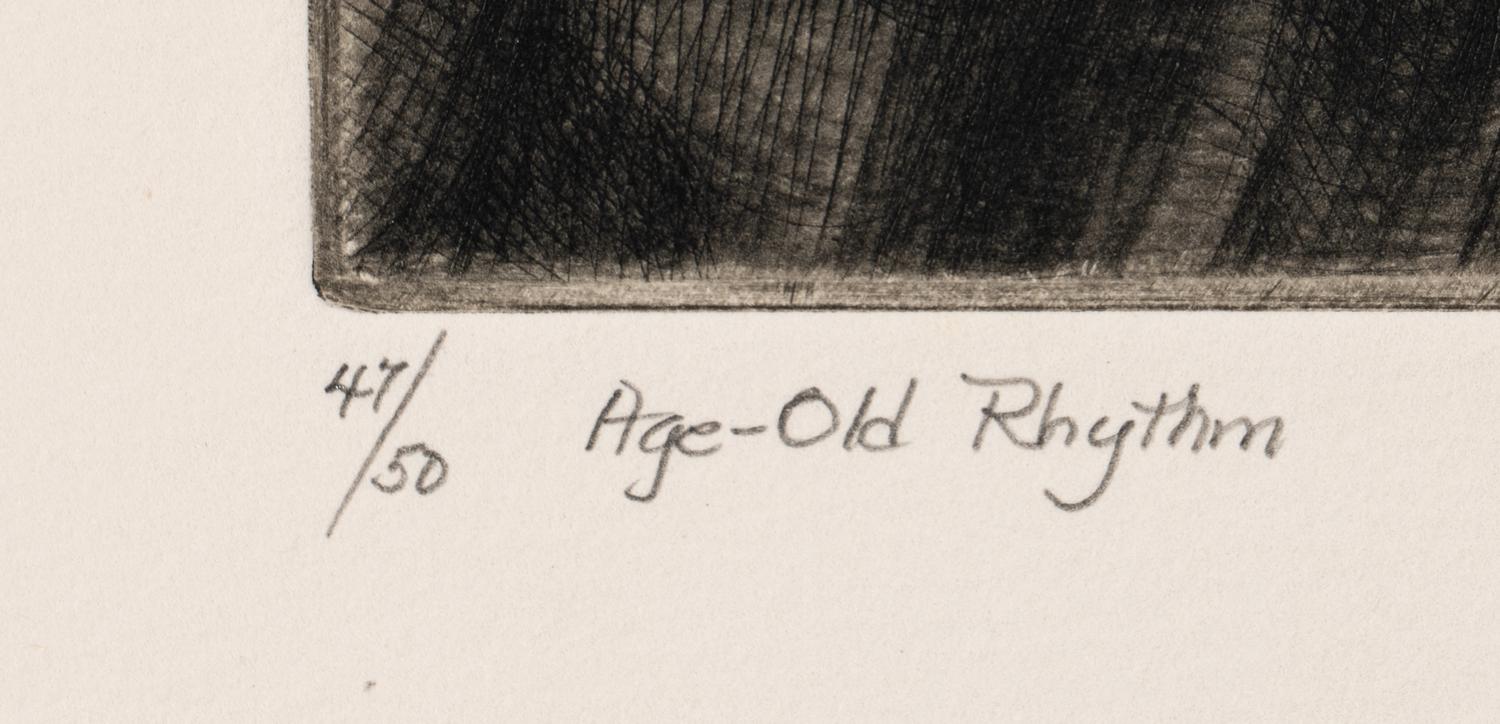 47/50 Age-Old Rhythm